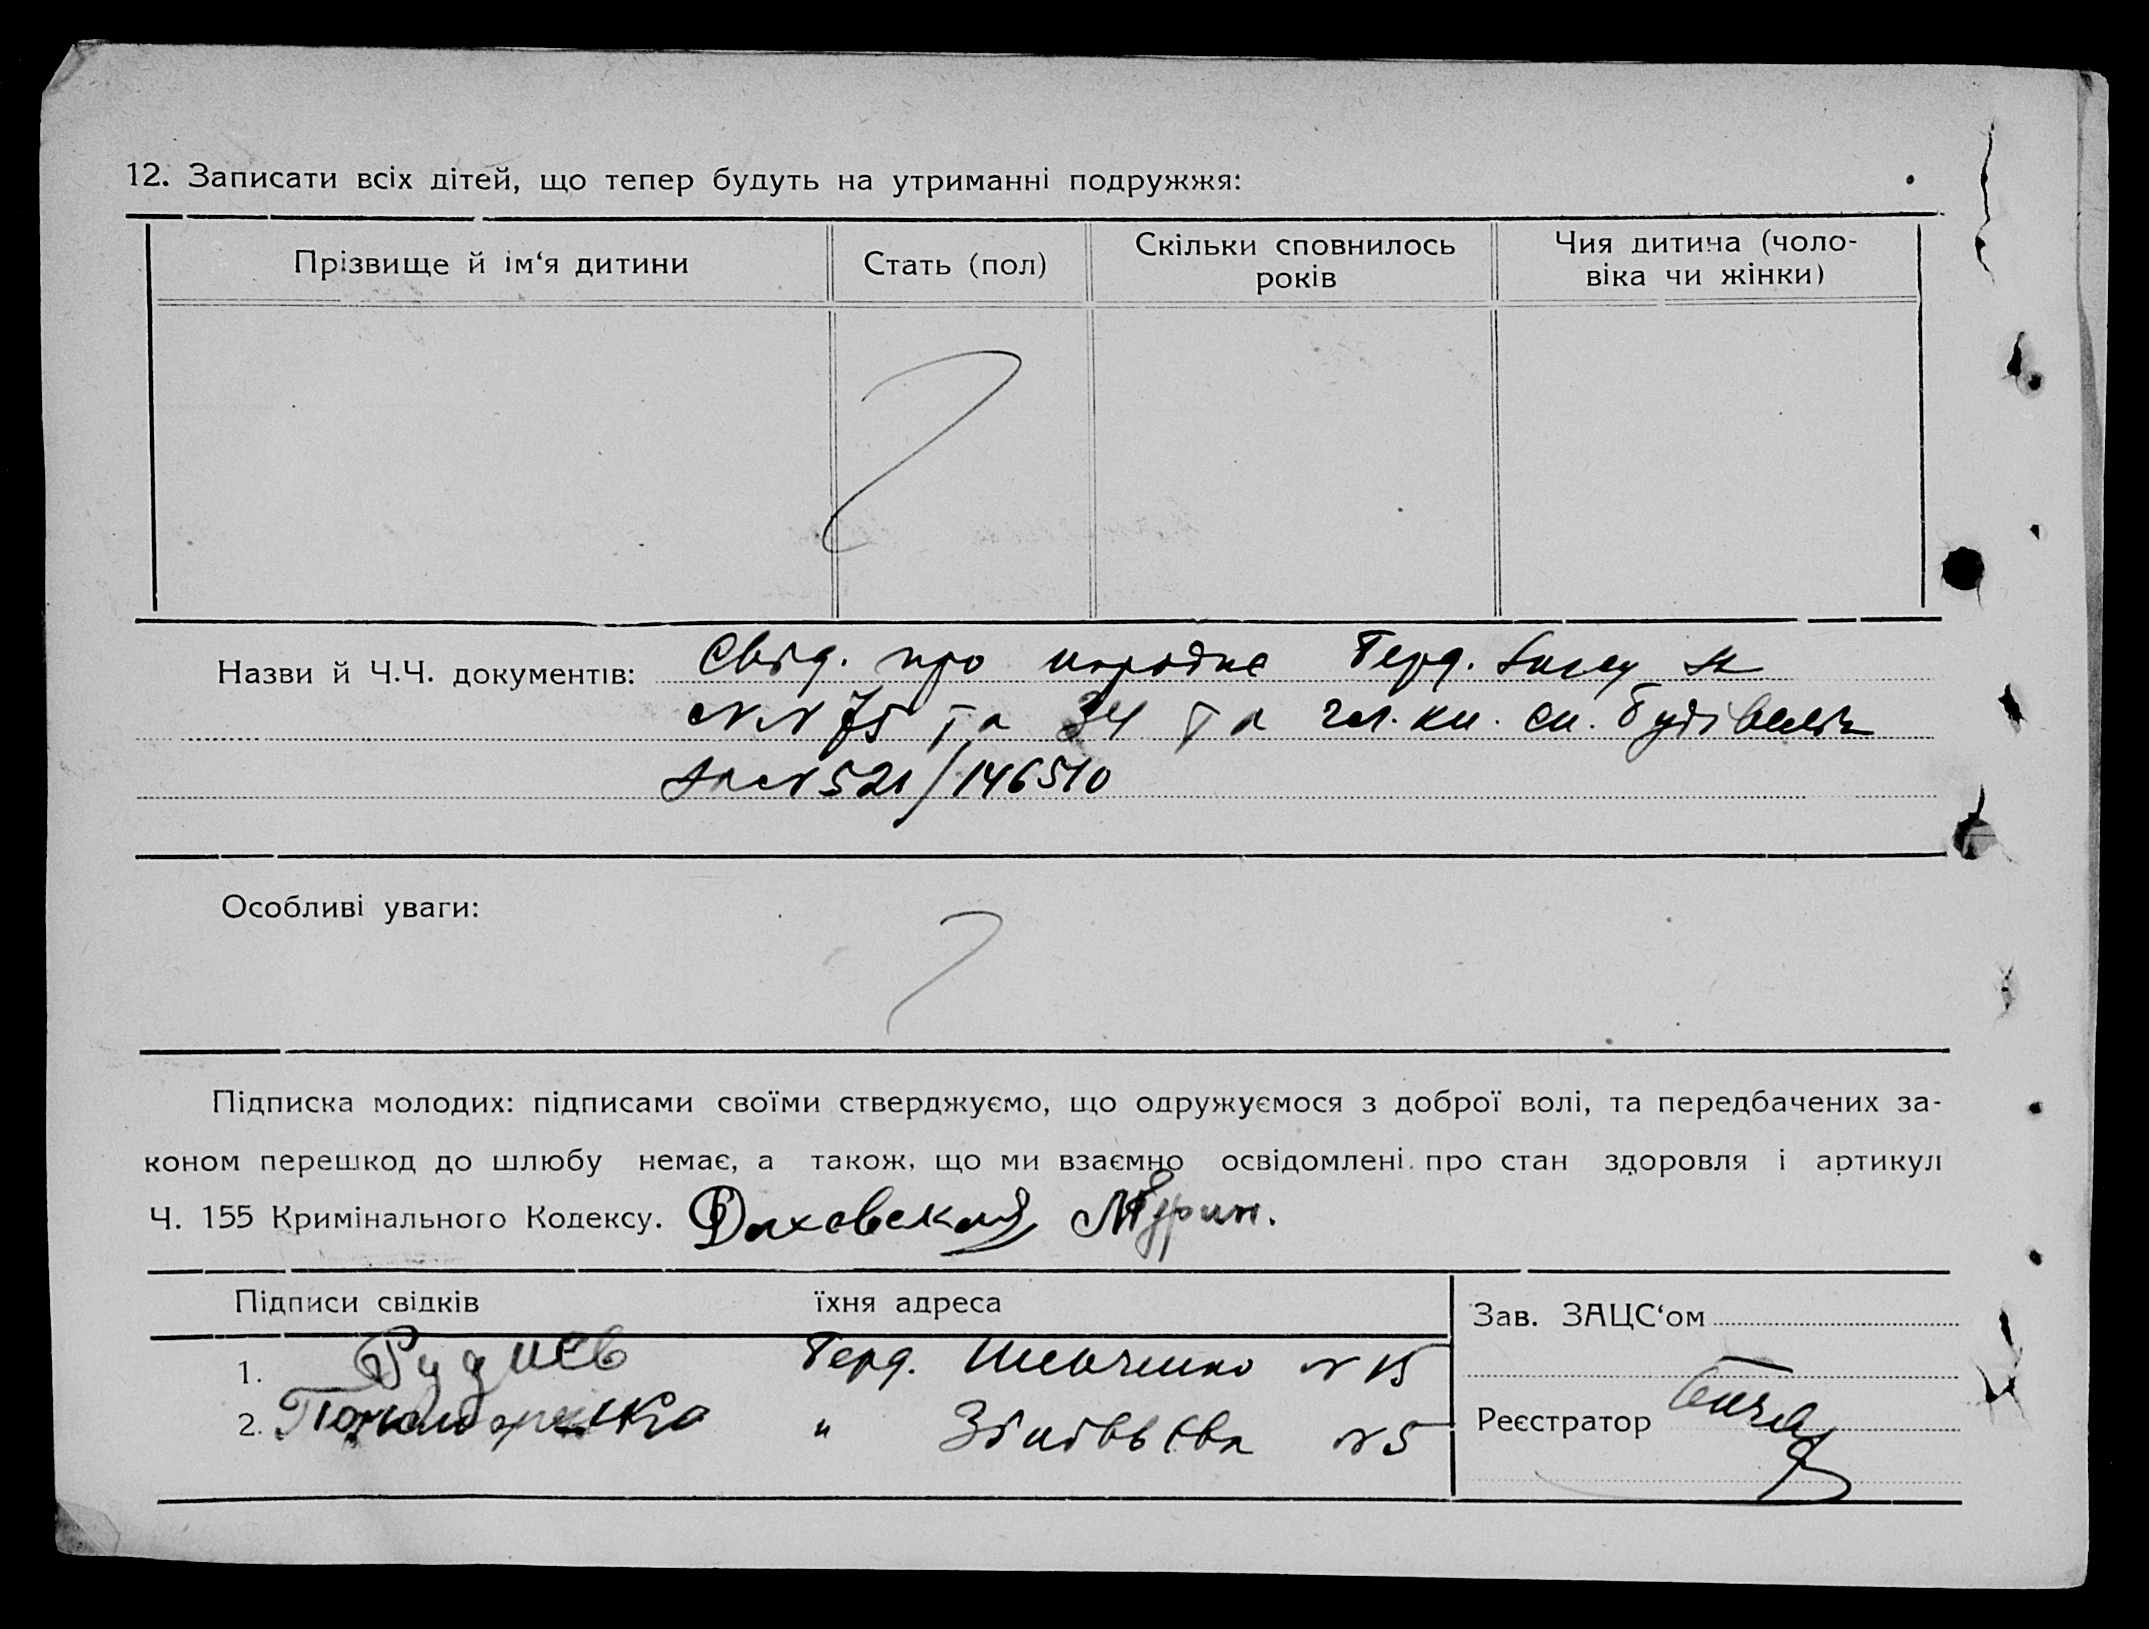 12. Записати всіх дітей, що тепер будуть на утриманні подружжя:
Прізвище й ім‘я дитини
Стать (пол)
Скільки сповнилось
років
Чия дитина (чоло-
віка чи жінки)
Назви й Ч.Ч. документів: Свід. про Герд.
№№ 75 та 34 та чл. кн. сп. будівель
№ 521/146510
Особливі уваги:
Підписка молодих: підписами своїми стверджуємо, що одружуємося з доброї волі, та передбачених за-
коном перешкод до шлюбу немає, а також, що ми взаємно освідомлені про стан здоровля і артикул
Ч. 155 Кримінального Кодексу.
Підписи свідків їхня адреса
Зав. ЗАЦС‘ом
1. Руднєв Герд. Шевченко № 15
2. Пономаренко " Зіновьєва № 5
Реєстратор